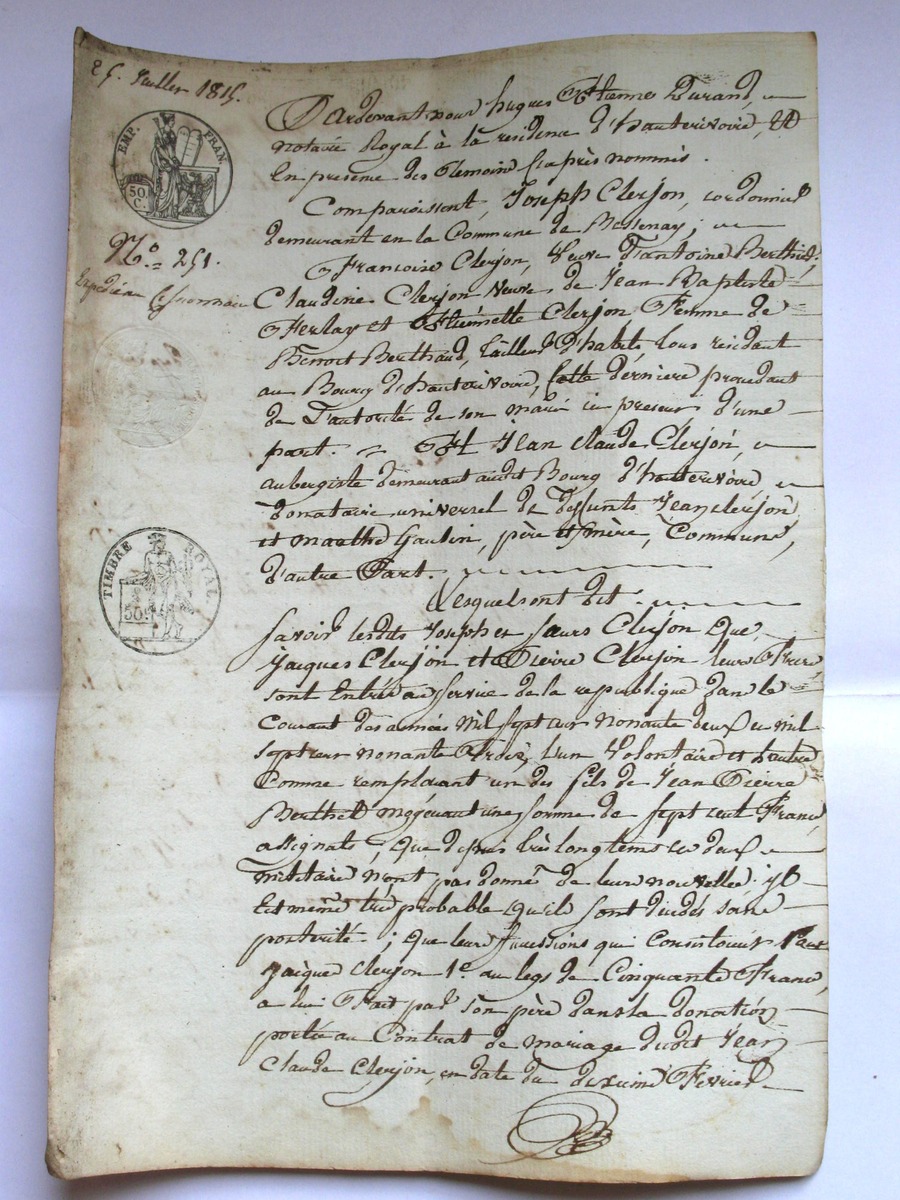 25. Juillet 1815.
EMP. FRAN.
50 C.
N.o 251.
Expédié au
TIMBRE ROYAL
50c
Pardevant nous hugues Etienne Durand,
notaire Royal à la residence d'hauterivoire, Et
En presence des temoins cy après nommés.
Comparoissent, Joseph Clerjon, cordonnier
demeurant en la Commune de Bessenay;
Francoise Clerjon, veuve d'antoine
Clauderie Clerjon veuve de Jean Baptiste
Ferlay et Etiennette Clerjon Femme de
Benoit Berthaud, tailleur d'habits, tous residant
au Bourg d'hauterivoire, cette derniere procedant
de l'autorité de son mari ici present d'une
part. Et Jean Claude Clerjon,
aubergiste demeurant audit Bourg d'hauterivoire
donataire universel de deffunts Jean clerjon
et marthe Gaulin, père et mère, Communs,
d'autre Part.
Lesquels ont dit
Savoir lesdits Joseph et sœurs Clerjon Que
jacques Clerjon et Pierre Clerjon leurs Frere
sont Entrés au service de la republique dans le
Courant des années mil sept cent nonante deux et mil
sept cent nonante trois, l'un Volontaire et l'autre
Comme remplacant un des fils de Jean Pierre
moyenant une somme de sept cent Francs
assignats; que depuis très longtems ces deux
militaire n'ont pas donné de leurs nouvelles; il
Est même très probable qu'ils sont décédés sans
postérité; que leurs successions qui consistent
jacques clerjon 1o. au legs de Cinquante Francs,
a lui Fait par son père dans la donation
portée au Contrat de mariage dudit Jean
Claude Clerjon, en date du Fevrier